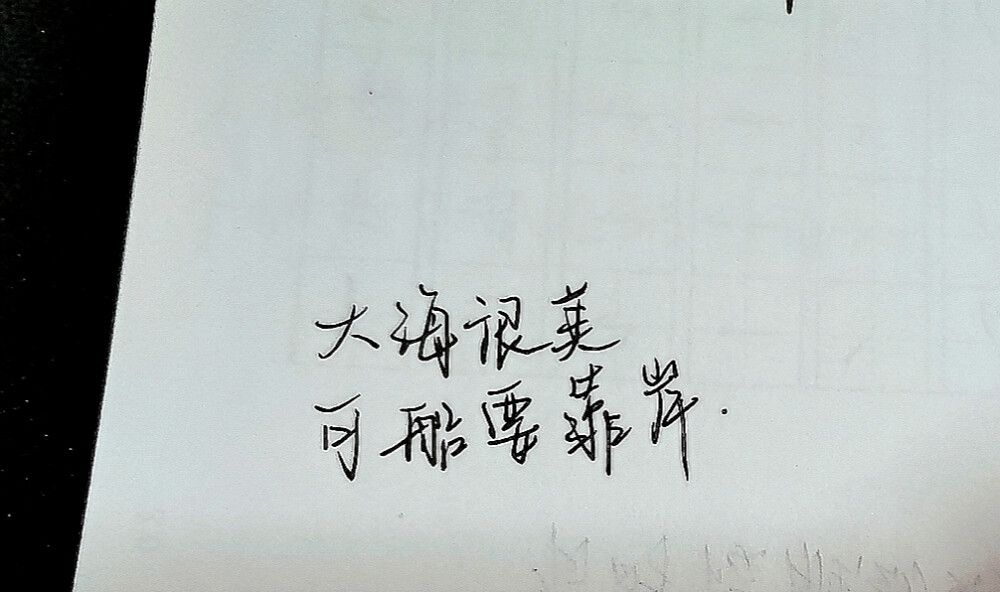 大海很美
可船要靠岸.